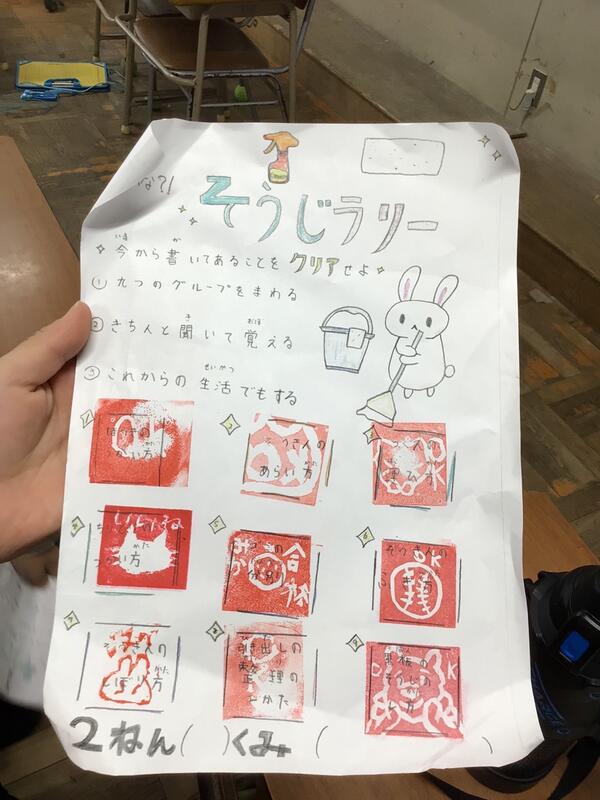 な?!
そうじラリー
今から書いてあることをクリアせよ
いま か
① 九つのグループをまわる
② きちんと聞いて覚える
き おぼ
③ これからの生活でもする
せいかつ
1
つかい方
2
ぞうきんの
あらい方
3
4
いいね
つかい方
かた
5
合
格
6
ぞうきんの
ふき方
OK
7
ぞうきんの
しぼり方
かた
8
引き出しの
整理の
しかた
9
黒板の
そうじの
しかた
OK
2ねん( )くみ ( )